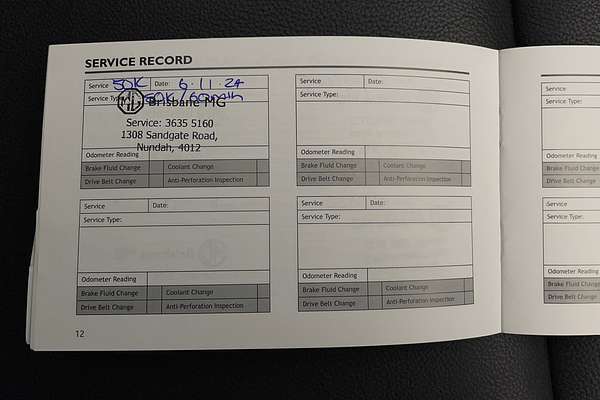 SERVICE RECORD
Service 50K Date: 6.11.24
Service Type: 50K/60mth
MG Brisbane MG
Service: 3635 5160
1308 Sandgate Road,
Nundah, 4012
Odometer Reading
Brake Fluid Change Coolant Change
Drive Belt Change Anti-Perforation Inspection
Service Date:
Service Type:
Odometer Reading
Brake Fluid Change Coolant Change
Drive Belt Change Anti-Perforation Inspection
Service Date:
Service Type:
Odometer Reading
Brake Fluid Change Coolant Change
Drive Belt Change Anti-Perforation Inspection
Service Date:
Service Type:
Odometer Reading
Brake Fluid Change Coolant Change
Drive Belt Change Anti-Perforation Inspection
12
Service
Service Type:
Odometer Reading
Brake Fluid Change
Drive Belt Change
Service
Service Type:
Odometer Reading
Brake Fluid Change
Drive Belt Change